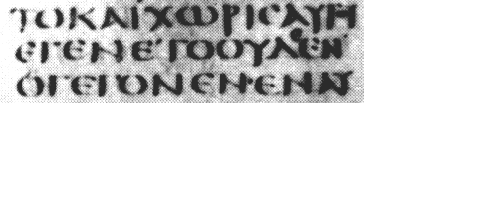 ΤΟΚΑΙΧΩΡΙϹΑΥΤΗ
ΕΓΕΝΕΤΟΟΥΔΕΝ
ΟΓΕΓΟΝΕΝ·ΕΝΑΥ